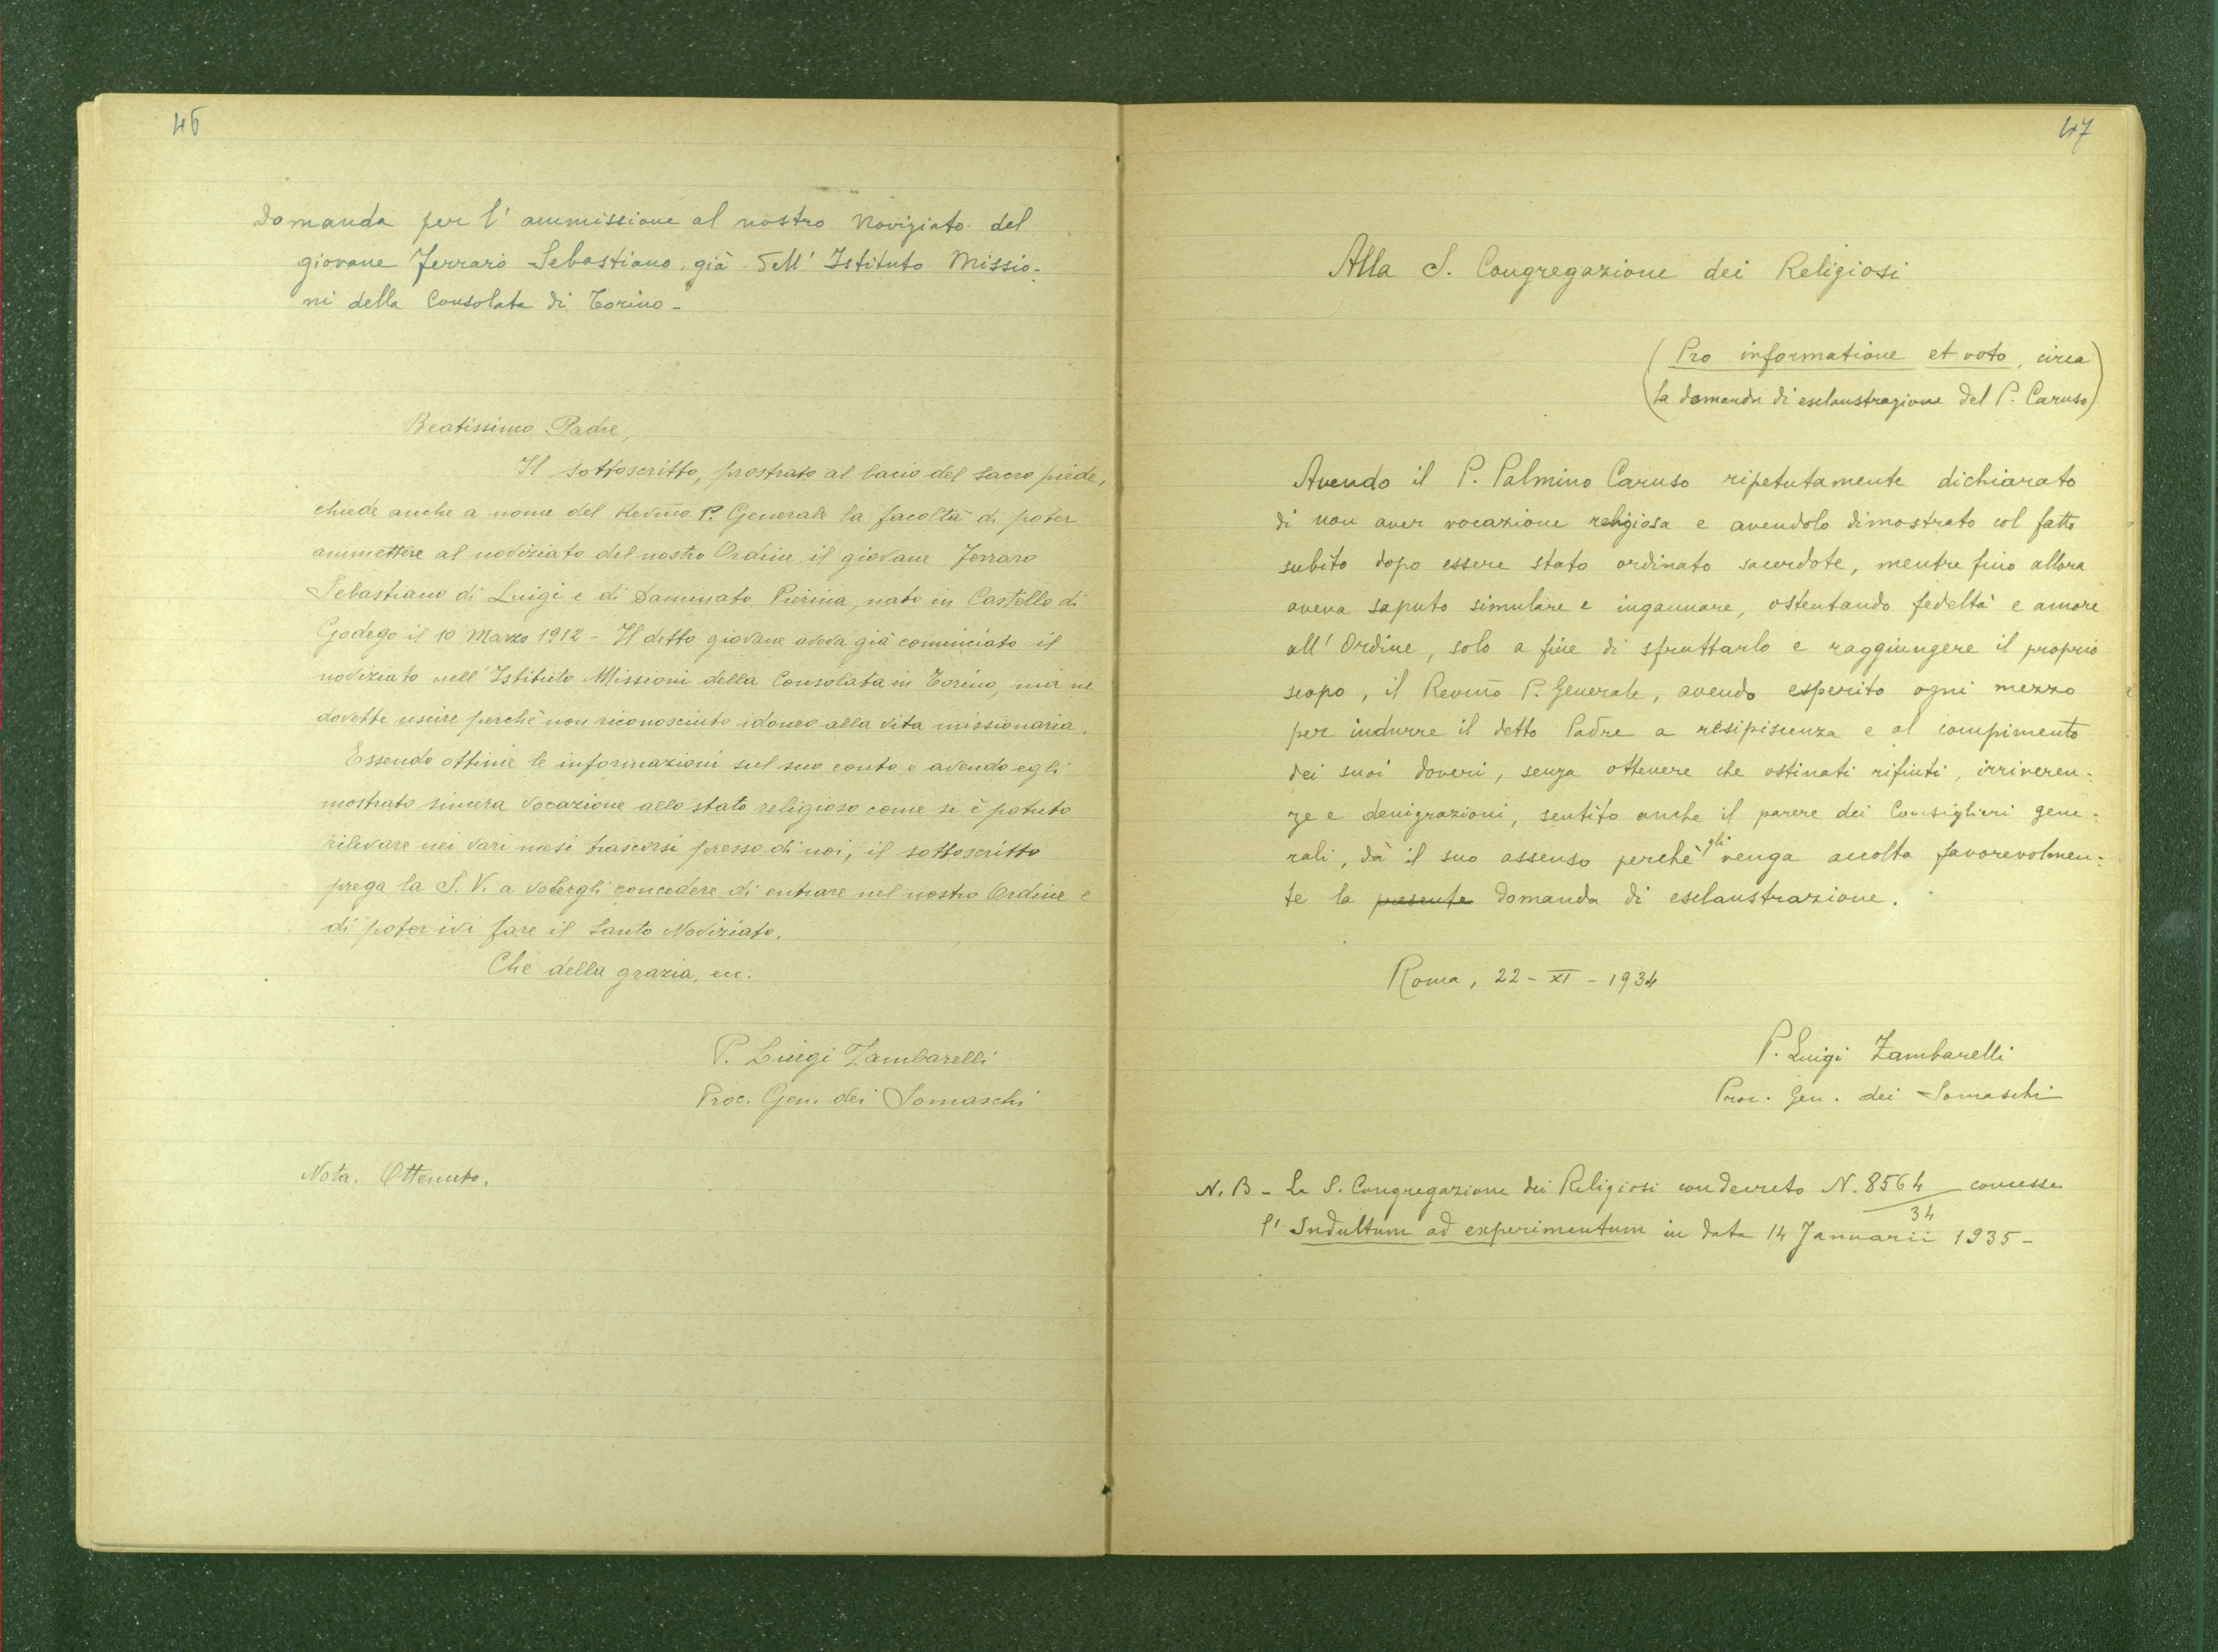 46
Domanda per l' ammissione al nostro Noviziato del
giovane Ferraro Sebastiano, già dell' Istituto Missio-
ni della Consolata di Torino -
Beatissimo Padre,
Il sottoscritto, prostrato al bacio del sacro piede,
chiede anche a nome del Revmo P. Generale la facoltà di poter
ammettere al noviziato del nostro Ordine il giovane Ferraro
Sebastiano di Luigi e di Damminato Pierina, nato in Castello di
Godego il 10 Marzo 1912 - Il detto giovane aveva già cominciato il
noviziato nell' Istituto Missioni della Consolata in Torino, ma ne
dovette uscire perchè non riconosciuto idoneo alla vita missionaria.
Essendo ottime le informazioni sul suo conto e avendo egli
mostrato sincera vocazione allo stato religioso come si è potuto
rilevare nei vari mesi trascorsi presso di noi, il sottoscritto
prega la S. V. a volergli concedere di entrare nel nostro Ordine e
di poter ivi fare il Santo Noviziato.
Che della grazia, ecc.
P. Luigi Zambarelli
Proc. Gen. dei Somaschi
Nota. Ottenuto.
47
Alla S. Congregazione dei Religiosi
(Pro informatione et voto, circa
la domanda di esclaustrazione del P. Caruso)
Avendo il P. Palmino Caruso ripetutamente dichiarato
di non aver vocazione religiosa e avendolo dimostrato col fatto
subito dopo essere stato ordinato sacerdote, mentre fino allora
aveva saputo simulare e ingannare, ostentando fedeltà e amore
all' Ordine, solo a fine di sfruttarlo e raggiungere il proprio
scopo, il Revmo P. Generale, avendo esperito ogni mezzo
per indurre il detto Padre a resipiscenza e al compimento
dei suoi doveri, senza ottenere che ostinati rifiuti, irriveren-
ze e denigrazioni, sentito anche il parere dei Consiglieri gene-
rali, dà il suo assenso perchè gli venga accolta favorevolmen-
te la presente domanda di esclaustrazione.
Roma, 22 - XI - 1934
P. Luigi Zambarelli
Proc. Gen. dei Somaschi
N. B - La S. Congregazione dei Religiosi con decreto N. 8564/34 concesse
l' Indultum ad experimentum in data 14 Januarii 1935 -